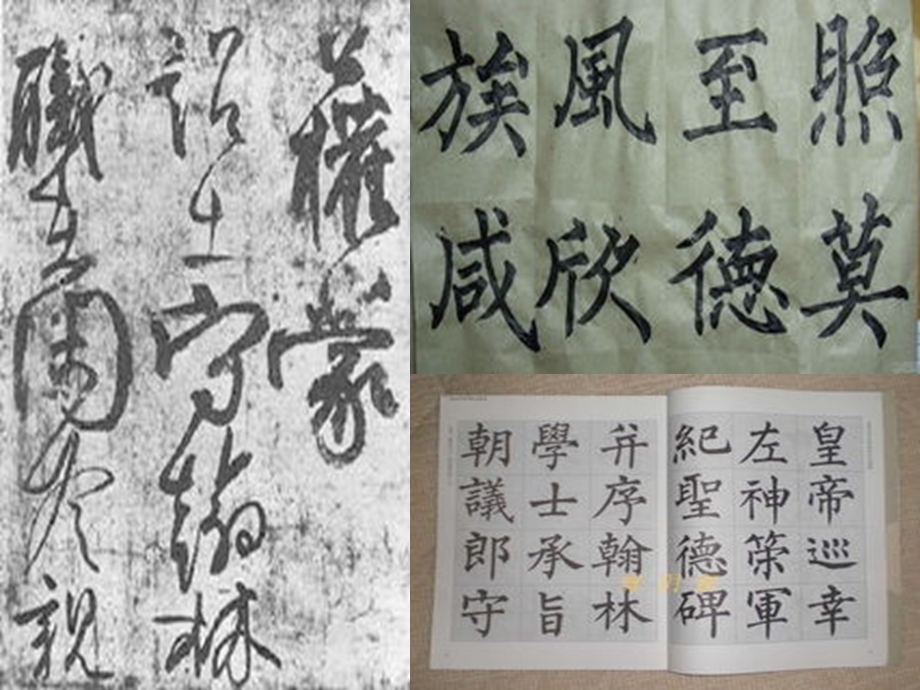 權蒙
守翰林
職令親
照莫
至德
風欣
族咸
皇帝巡幸
左神策軍
紀聖德碑
并序翰林
學士承旨
朝議郎守